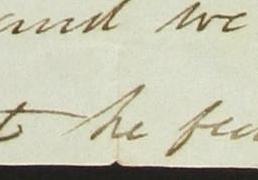 and we
he